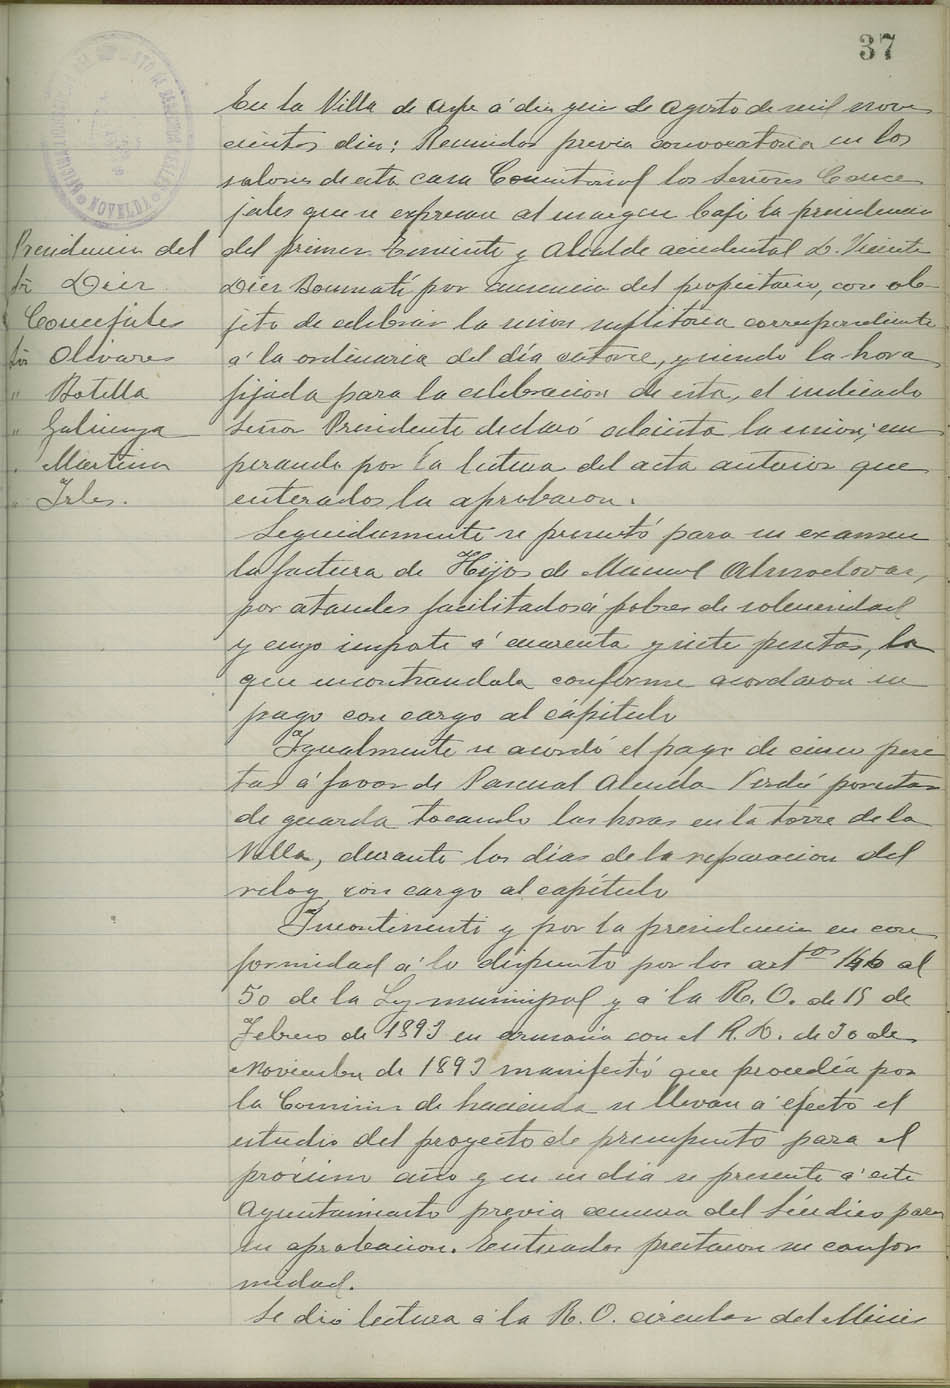 37
En la Villa de Aspe á diez y seis de Agosto de mil nove
cientos diez; Reunidos previa convocatoria en los
salones de esta casa Consistorial los Señores Conce
jales que se expresan al margen bajo la presidencia
del primer Teniente y Alcalde accidental D. Vicente
Diez por ausencia del propietario, con ob-
jeto de celebrar la sesion supletoria correspondiente
á la ordinaria del día catorce, y siendo la hora
fijada para la celebracion de esta, el indicado
Señor Presidente declaró abierta la sesion; em
pezando por la lectura del acta anterior que
enterados la aprobaron.
Presidencia del
Sr Diez
Concejales
Sr Olivares
" Botella
" Galinsoga
" Martinez
" Irles.
Seguidamente se presentó para su examen
la factura de Hijos de Manuel Almodovar,
por ataudes facilitados á pobres de solemnidad
y cuyo importe á cuarenta y siete pesetas, la
que encontrandola conforme acordaron su
pago con cargo al cápitulo
Igualmente se acordó el pago de cinco pese
tas á favor de Pascual Alenda Verdú por estar
de guarda tocando las horas en la torre de la
Villa, durante los días de la reparacion del
relog con cargo al capítulo
Incontinenti y por la presidencia en con
formidad á lo dispuesto por los artos 146 al
50 de la Ley municipal y á la R. O. de 15 de
Febrero de 1893 en armonía con el R. D. de 30 de
Noviembre de 1893 manifestó que procedía por
la Comision de hacienda se llevara á efecto el
estudio del proyecto de presupuesto para el
próximo año y en su dia se presente á este
Ayuntamiento previa censura del Síndico para
su aprobacion. Enterados prestaron su confor
midad.
Se dió lectura á la R. O. circular del Minis
NOVELDA